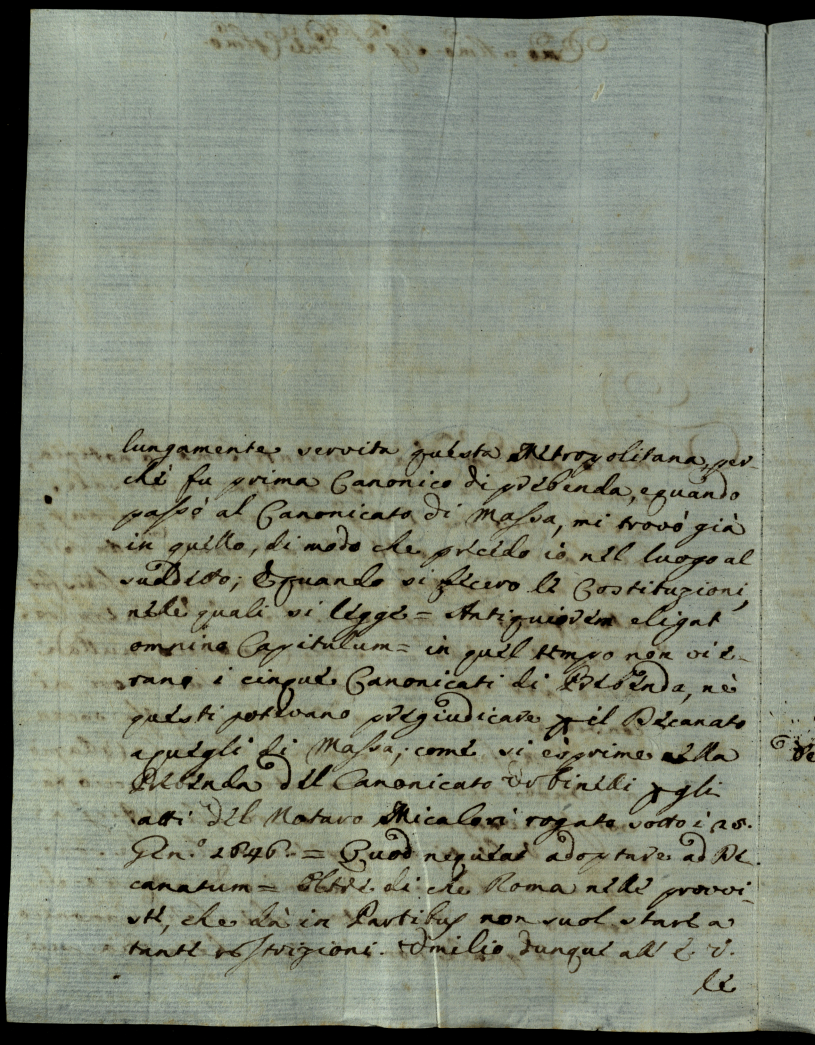 lungamente servita questa Metropolitana, per-
chè fu prima Canonico di prebenda, e quando
passò al Canonicato di Massa, mi trovò già
in quello, di modo che precedo io nel luogo al
suddetto; E quando si fecero le Costituzioni,
nelle quali si legge = Antiquiorem eligat
omnino Capitulum = in quel tempo non vi e-
rano i cinque Canonicati di Prebenda, nè
questi potevano pregiudicare p il Decanato
a quegli di Massa; come si esprime nella
Prebenda del Canonicato Urbinelli p gli
atti del Notaro Micalori rogato sotto i 28.
Gen.º 1646. = Quod nequeat adoptare ad De-
canatum = Oltre di che Roma nelle provvi-
ste, che dà in Partibus non suol stare a
tante restrizioni. Umilio dunque all' E. V.
le